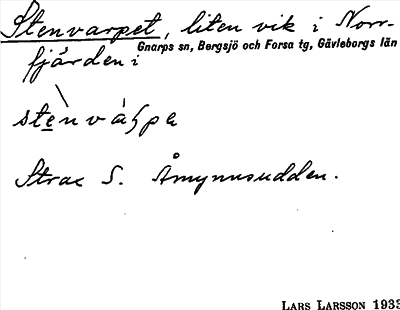 Stenvarpet, liten vik i Norr-
fjärden i Gnarps sn, Bergsjö och Forsa tg, Gävleborgs län
Strax S. Åmynnsudden.
LARS LARSSON 1933